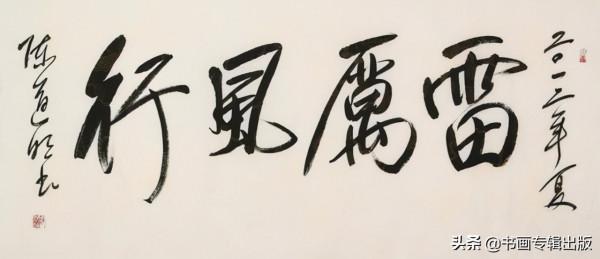 二〇一三年夏
雷厲風行
陈道明书
头条 @书画专辑出版